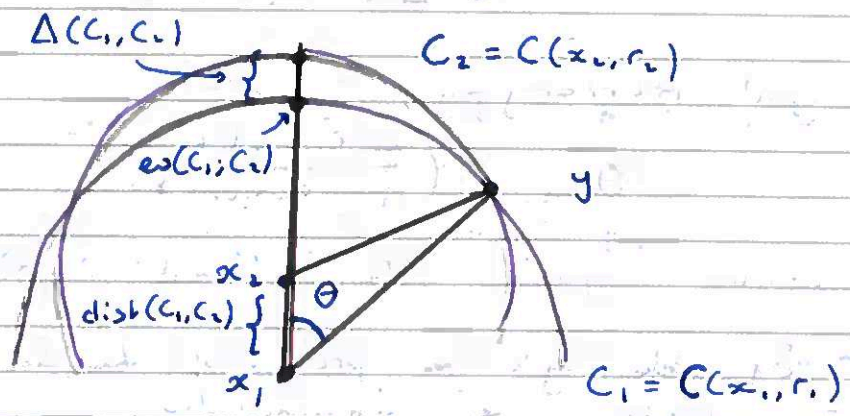 Δ(C₁,C₂)
C₂ = C(x₂,r₂)
ev(C₁;C₂)
y
x₂
θ
dist(C₁,C₂)
x₁
C₁ = C(x₁,r₁)